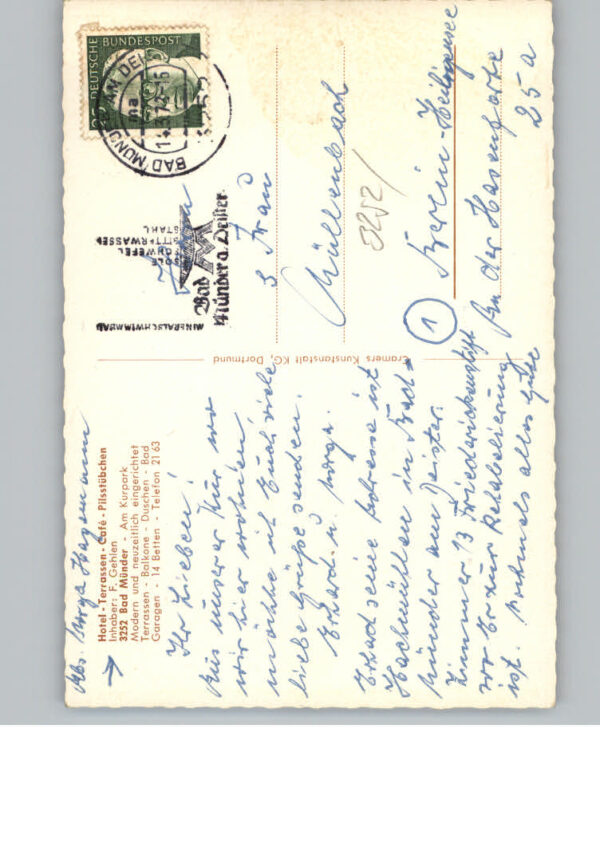 Abs. Helga Hagemann
Hotel - Terrassen - Café - Pilsstübchen
Inhaber: F. Gehlen
3252 Bad Münder - Am Kurpark
Modern und neuzeitlich eingerichtet
Terrassen - Balkone - Duschen - Bad
Garagen - 14 Betten - Telefon 21 63
Ihr Lieben!
Aus unserer Kur wo
wir hier wohnen
möchte ich Euch viele
liebe Grüße senden.
Erhard u. Helga.
Erhard seine Adresse ist
Hachmühlen in Bad-
Münder am Deister.
Zimmer 13 Friederickenstift
wo Er zur Rehabelierung
ist. nochmals alles gute
Cramers Kunstanstalt KG, Dortmund
DEUTSCHE BUNDESPOST
BAD MÜNDER AM DEI
3252
ma
14.3.72-15
MINERALSCHWIMMBAD
SOLE
SCHWEFEL
BITTERWASSER
STAHL
Bad
Münder a. Deister
s Frau
Müllenbach
3252/
1
Berlin-Heiligensee
An der Hasenfurte
25a